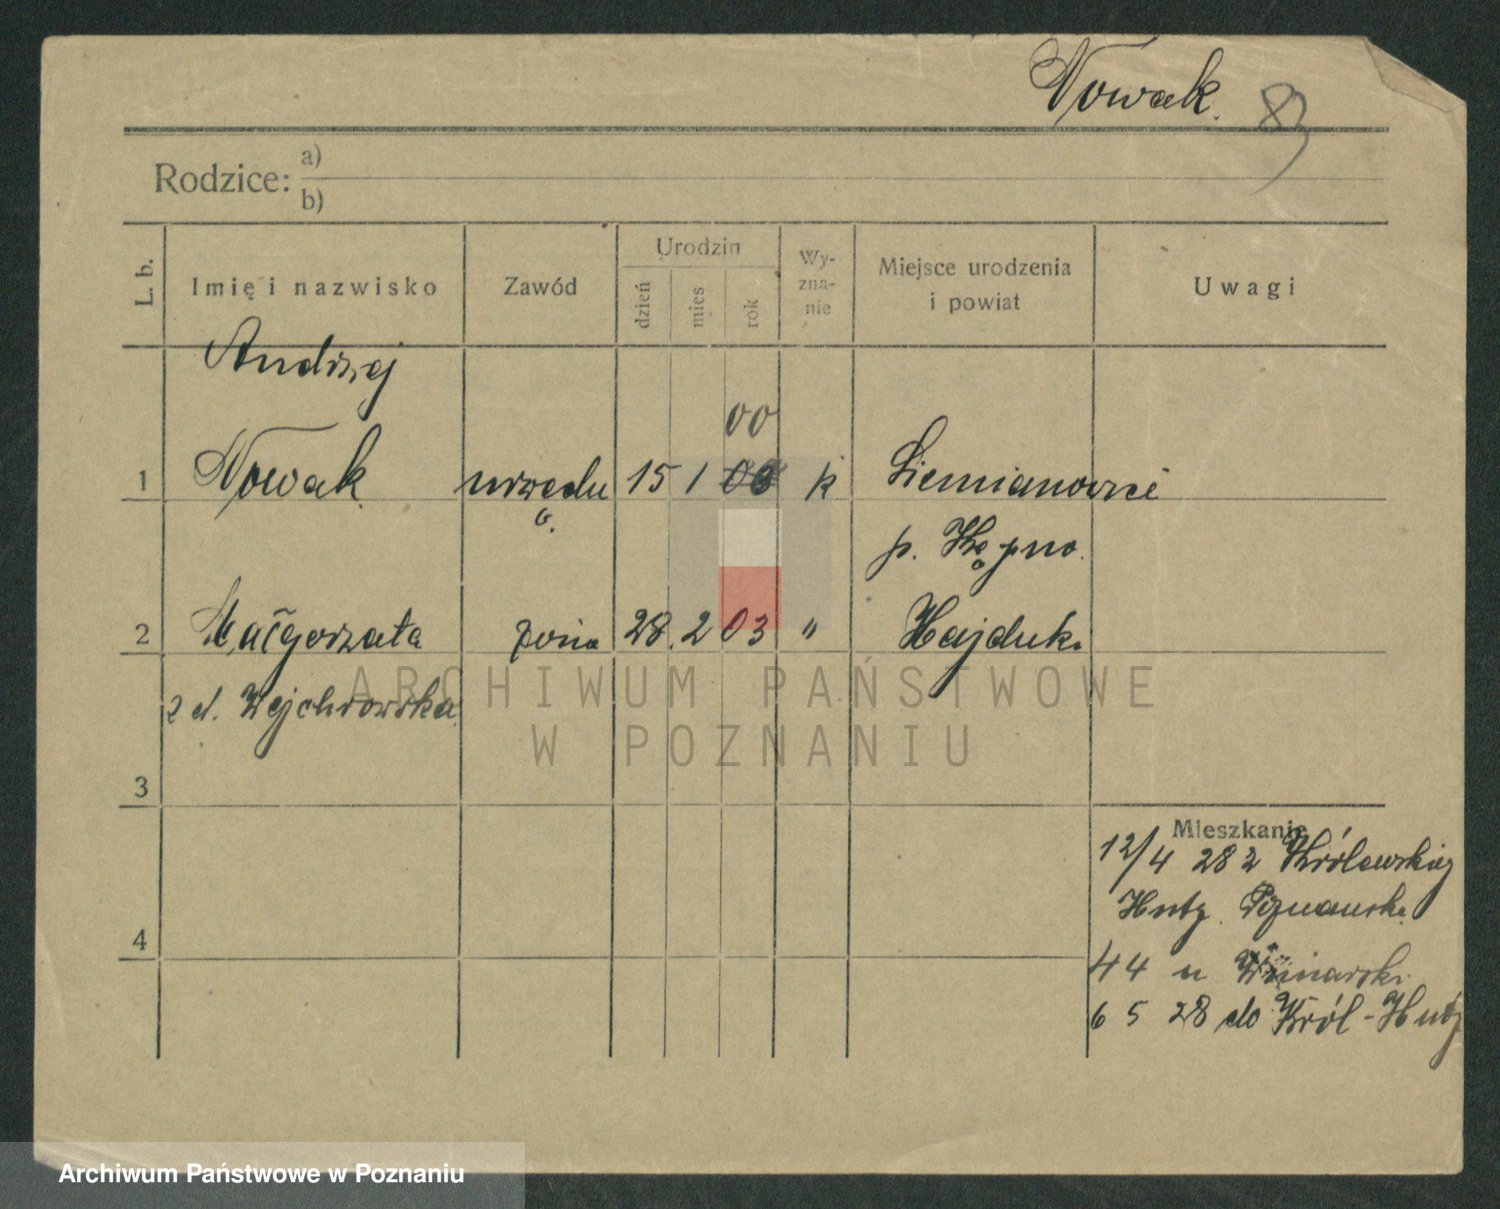 Nowak. 83
Rodzice: a)
b)
L. b.
Imię i nazwisko
Zawód
Urodzin
dzień
mies
rok
Wy-
zna-
nie
Miejsce urodzenia
i powiat
Uwagi
Andrzej
00
1 Nowak urzędn 15 1 00 k Siemianowice
p. Kępno.
2 Małgorzata żona 28. 2 03 " Hajduki
z d. Wejchrowska
ARCHIWUM PAŃSTWOWE
W POZNANIU
3
Mieszkanie
12/4 28 z Królewskiej
Huty. Poznańska
4
44 u Winiarski
6 5 28 do Król-Huty
Archiwum Państwowe w Poznaniu